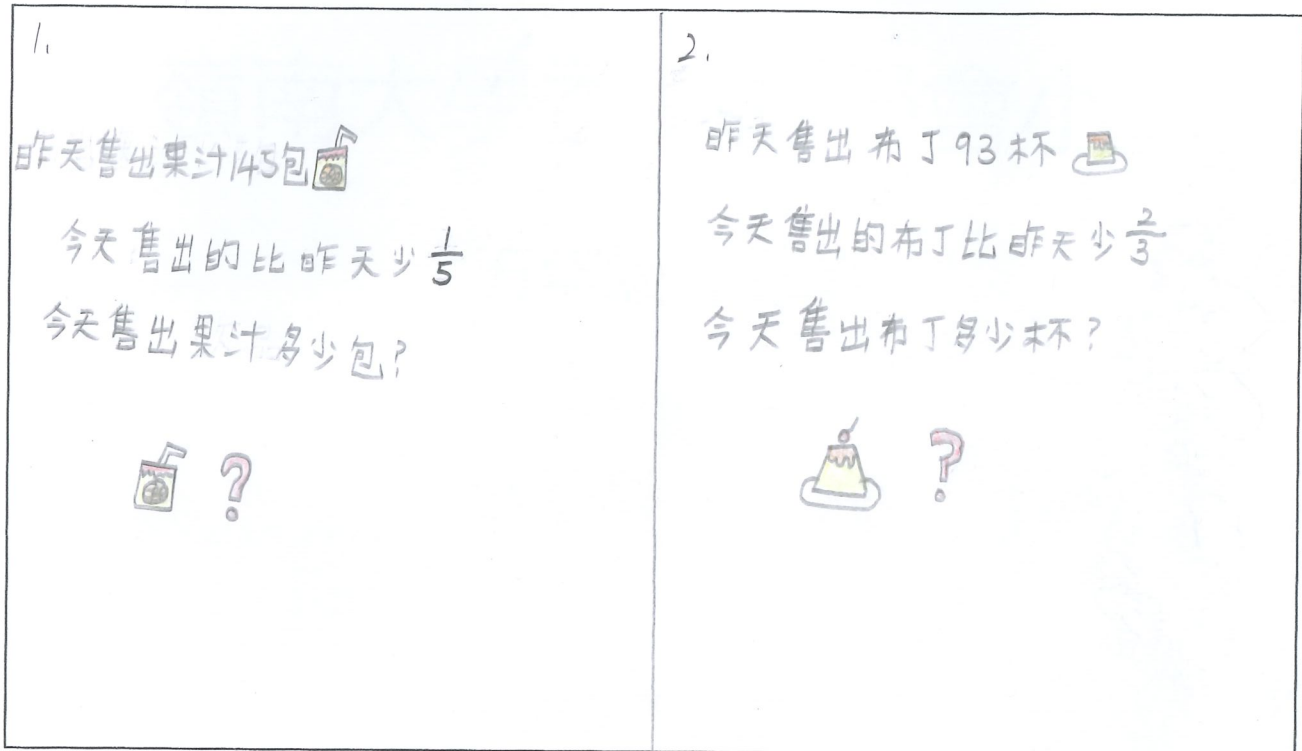 1.
昨天售出果汁145包
今天售出的比昨天少1/5
今天售出果汁多少包?
?
2.
昨天售出布丁93杯
今天售出的布丁比昨天少2/3
今天售出布丁多少杯?
?